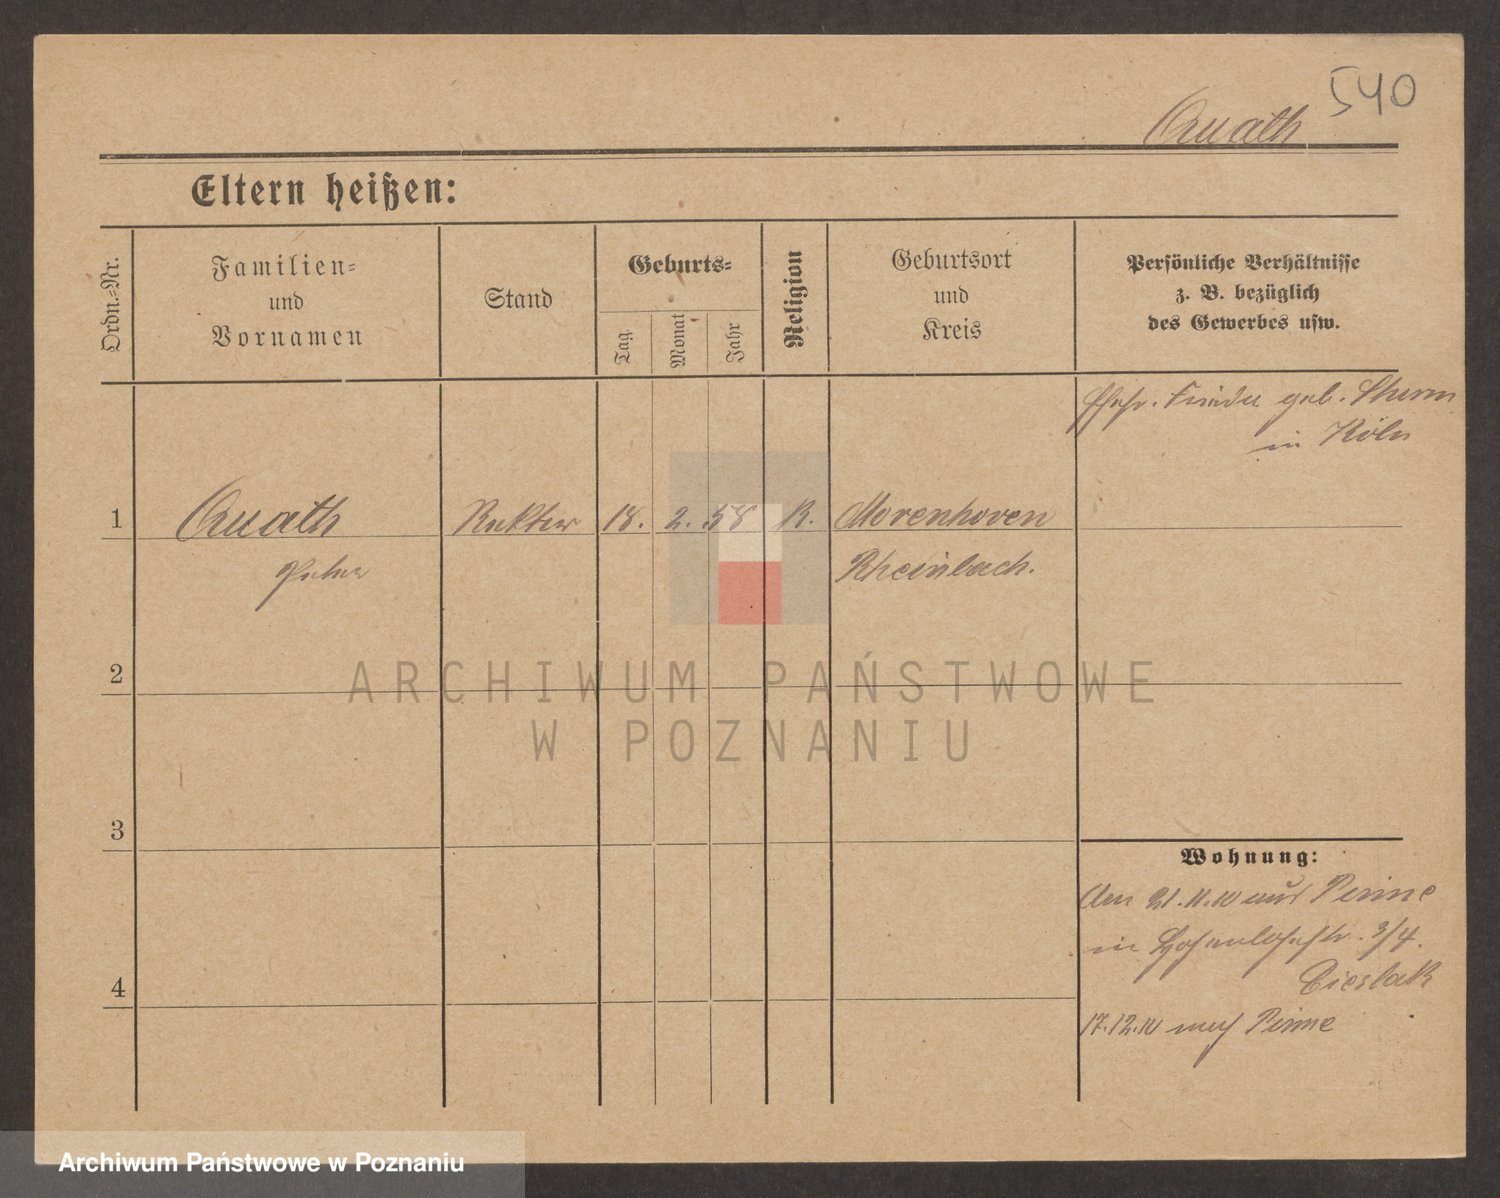 540
Quath
Eltern heißen:
Ordn.-Nr.
Familien-
und
Vornamen
Stand
Geburts-
Tag
Monat
Jahr
Religion
Geburtsort
und
Kreis
Persönliche Verhältnisse
z. B. bezüglich
des Gewerbes usw.
Ehefr. geb. Sturm
in Köln
1 Quath Rektor 18. 2. 58 K. Morenhoven
Peter Rheinbach.
2
ARCHIWUM PAŃSTWOWE
W POZNANIU
3
Wohnung:
Am 21.11.10 aus Pinne
in Hohenlohestr. 3/4.
Cieslak
4
17.12.10 nach Pinne
Archiwum Państwowe w Poznaniu